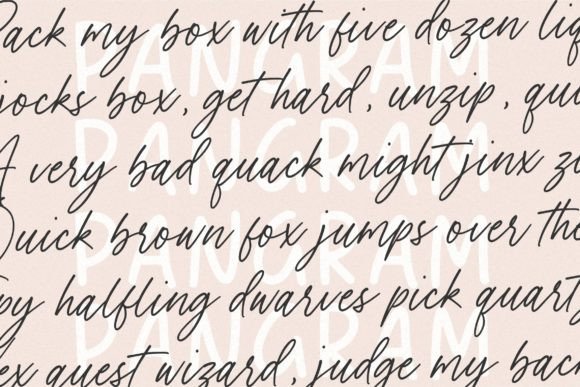 Pack my box with five dozen liq
PANGRAM
jocks box, get hard, unzip, qui
PANGRAM
A very bad quack might jinx zi
Quick brown fox jumps over the
PANGRAM
py halfling dwarves pick quartz
PANGRAM
ex quest wizard, judge my back